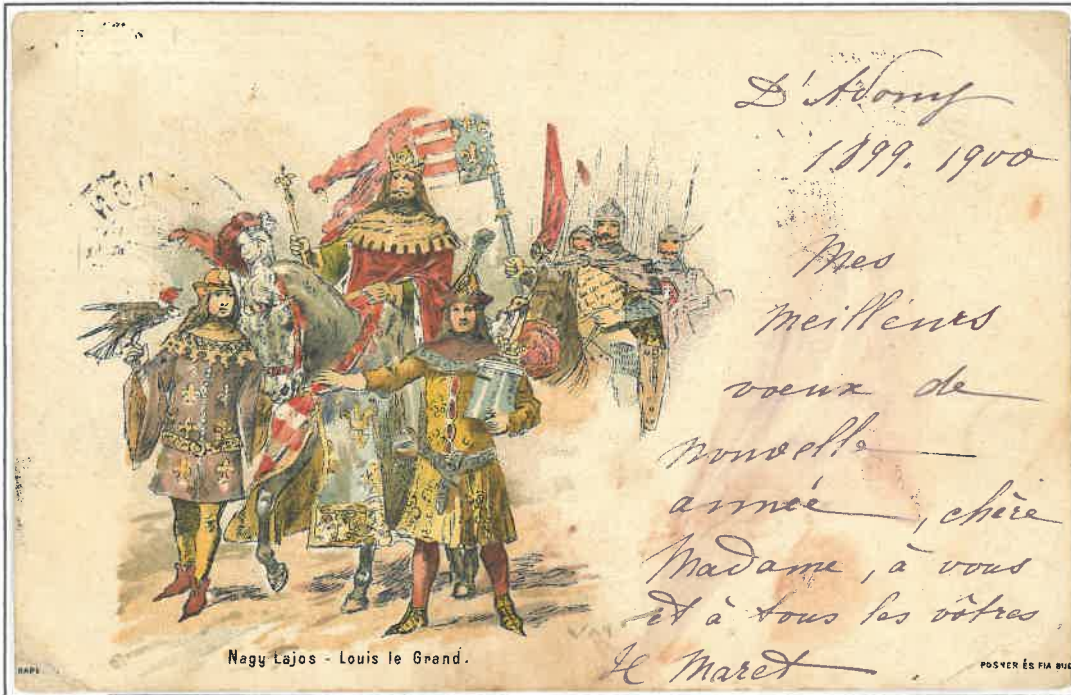 D'Adony
1899. 1900
Mes
meilleurs
vœux de
nouvelle
année, chère
Madame, à vous
et à tous les vôtres
H Maret
Nagy Lajos - Louis le Grand.
POSNER ÉS FIA BUD